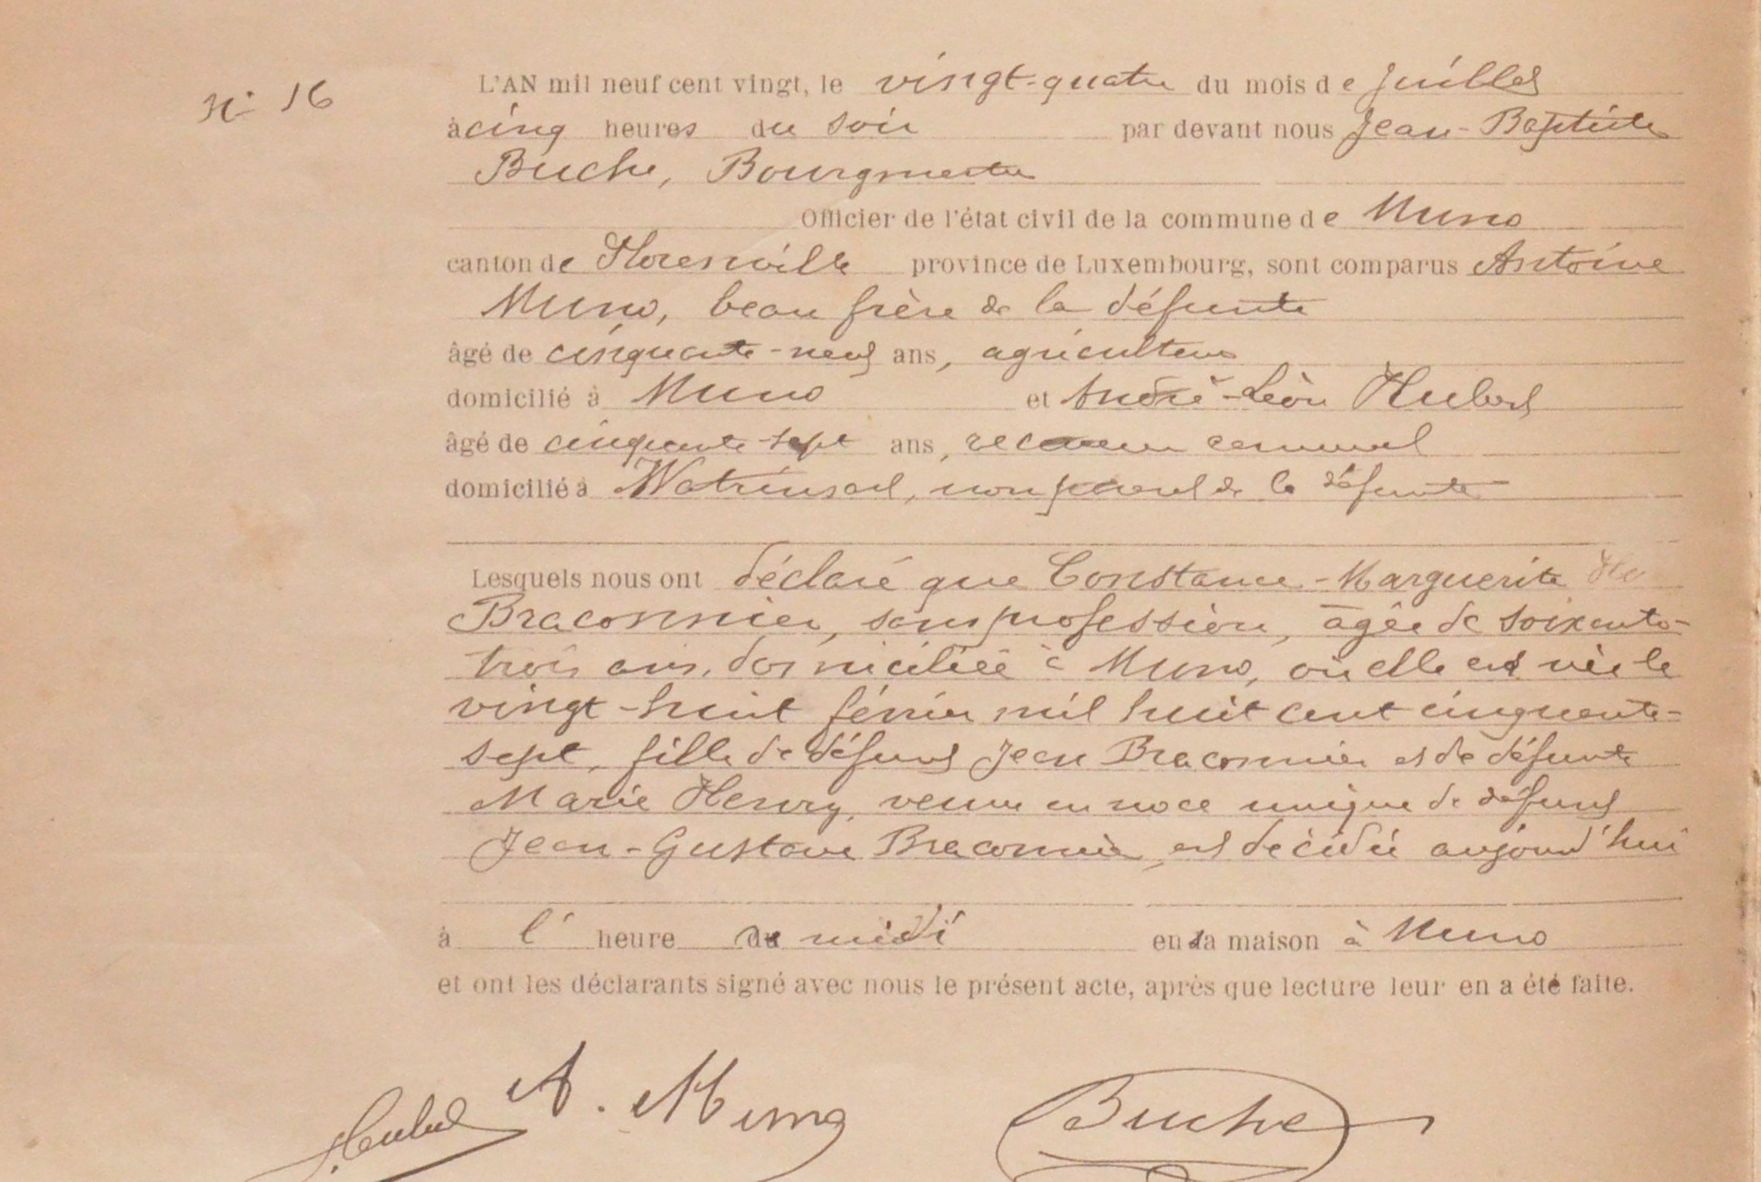 N° 16
L'AN mil neuf cent vingt, le vingt-quatre du mois de Juillet
à cinq heures du soir par devant nous Jean-Baptiste
Buche, Bourgmestre
Officier de l'état civil de la commune de Muno
canton de Florenville province de Luxembourg, sont comparus Antoine
Muno, beau frère de la défunte
âgé de cinquante-neuf ans, agriculteur
domicilié à Muno et André-Léon Hubert
âgé de cinquante-sept ans, receveur communal
domicilié à Watrinsart, non parent de la défunte
Lesquels nous ont déclaré que Constance-Marguerite
Braconnier, sans profession, âgée de soixante-
trois ans, domiciliée à Muno, où elle est née le
vingt-huit février mil huit cent cinquante-
sept, fille de défunt Jean Braconnier et de défunte
Marie Henry, veuve en noce unique de défunt
Jean-Gustave Braconnier, est décédée aujourd'hui
à l' heure de midi en sa maison à Muno
et ont les déclarants signé avec nous le présent acte, après que lecture leur en a été faite.
Hubert A. Muno Buche